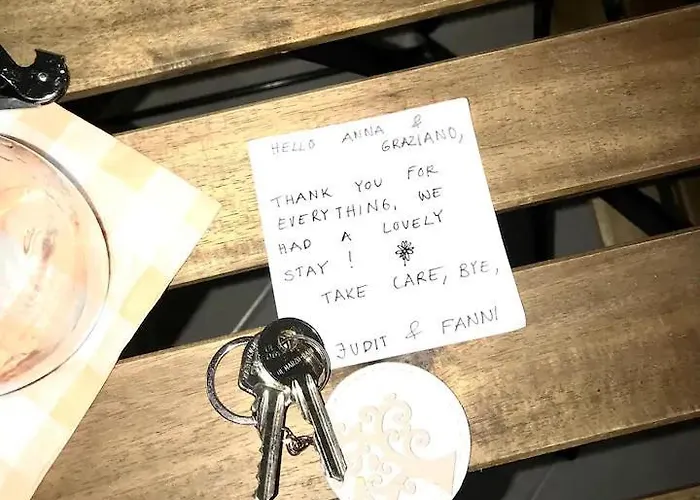 HELLO ANNA &
GRAZIANO,
THANK YOU FOR
EVERYTHING, WE
HAD A LOVELY
STAY!
TAKE CARE, BYE,
JUDIT & FANNI